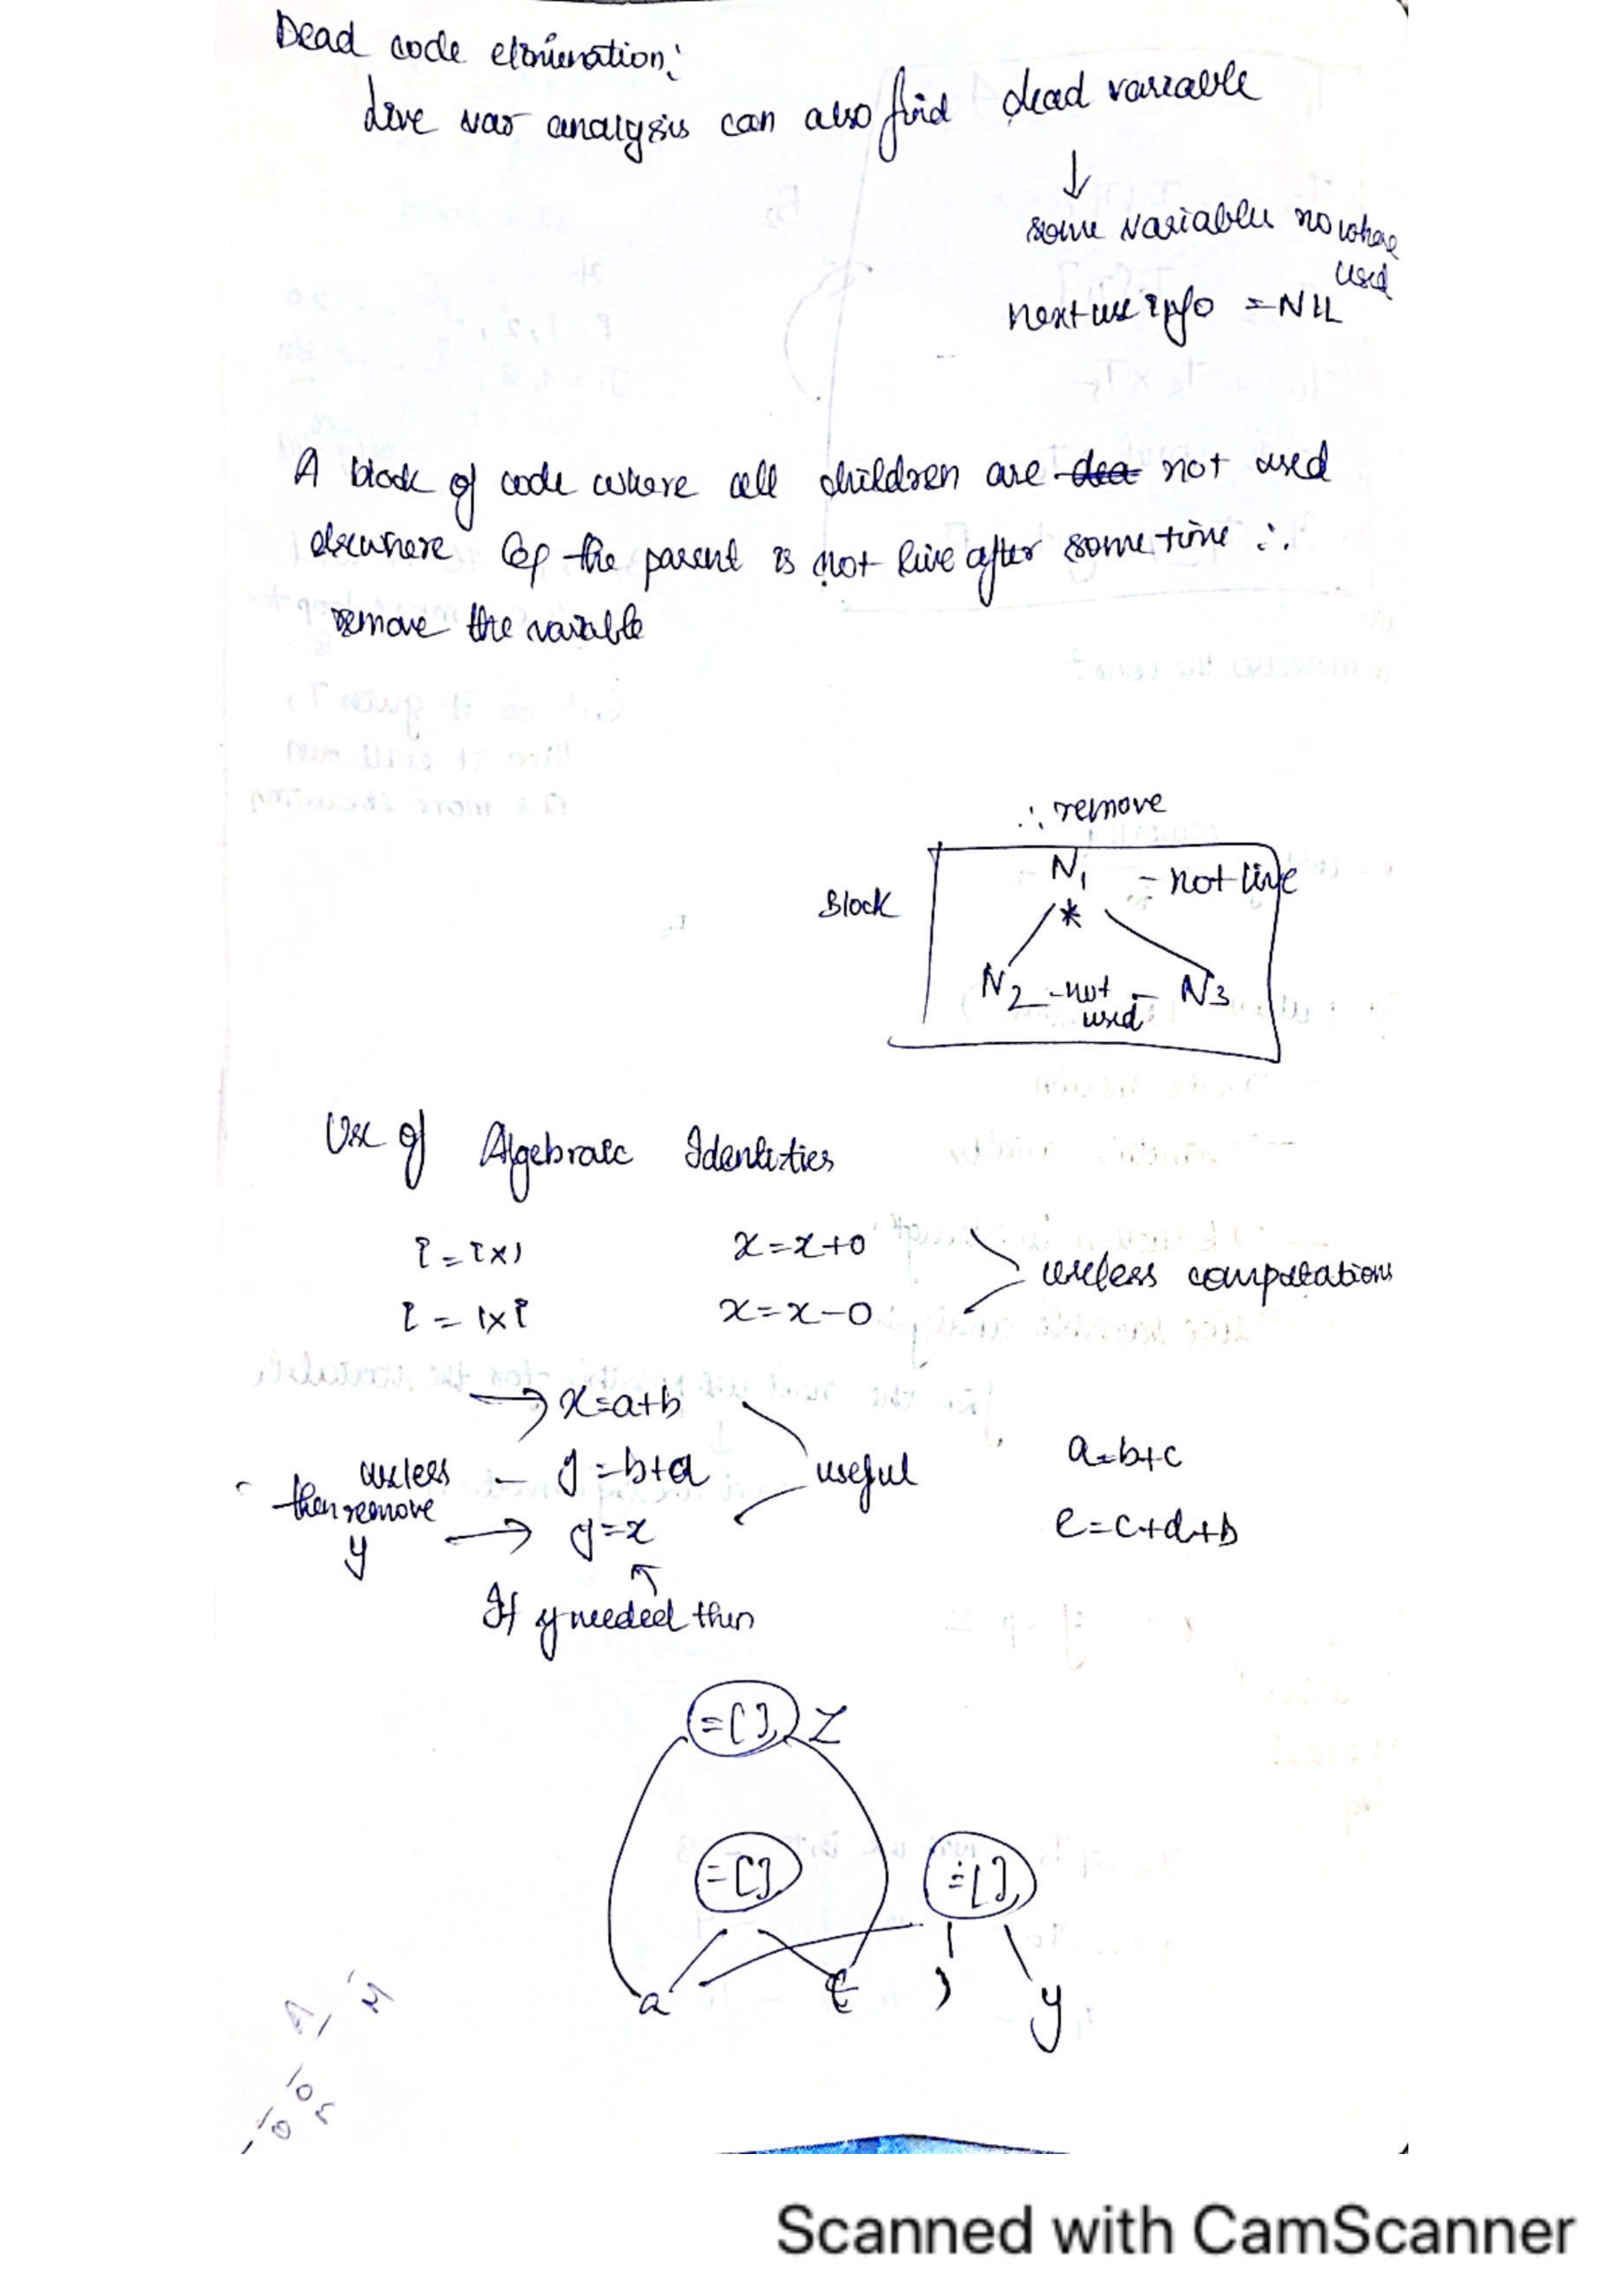 Dead code elimination:
Live var analysis can also find dead variable
↓
some variables nowhere
used
next use info = NIL
A block of code where all children are not used
elsewhere & the parent is not live after some time ∴
remove the variable
∴ remove
Block
N1 - not live
*
N2 - not - N3
used
Use of Algebraic Identities
i = i×1 x = x+0
useless computations
i = 1×i x = x-0
→ x=a+b
useless - y = b+a useful a=b+c
then remove
y → y=x e=c+d+b
If y needed then
=[], z
=[] =[],
a i j y
Scanned with CamScanner